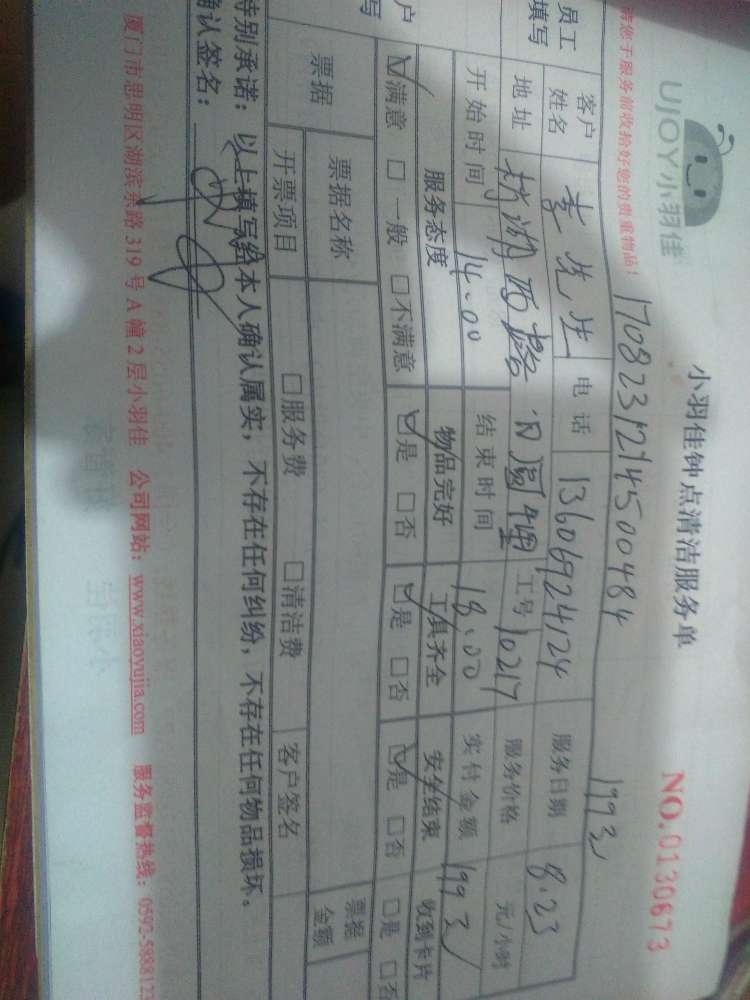 UJOY小羽佳
小羽佳钟点清洁服务单
NO.0130673
请您于服务前收拾好您的贵重物品!
1708231214500484
199元
员工填写
客户姓名 李先生 电话 13606924124 服务日期 8.23
地址 工号 10217 服务价格 元/小时
开始时间 14.00 结束时间 18.00 实付金额 199元
户
写
服务态度 物品完好 工具齐全 安全结束 收到卡片
☑满意 □一般 □不满意 ☑是 □否 ☑是 □否 ☑是 □否 □是 □否
票据 票据名称 票据金额
开票项目 □服务费 □清洁费 客户签名
特别承诺:以上填写经本人确认属实,不存在任何纠纷,不存在任何物品损坏。
确认签名:
厦门市思明区湖滨东路 319 号 A 幢 2 层小羽佳 公司网站:www.xiaoyujia.com 服务监督热线:0592-5888123